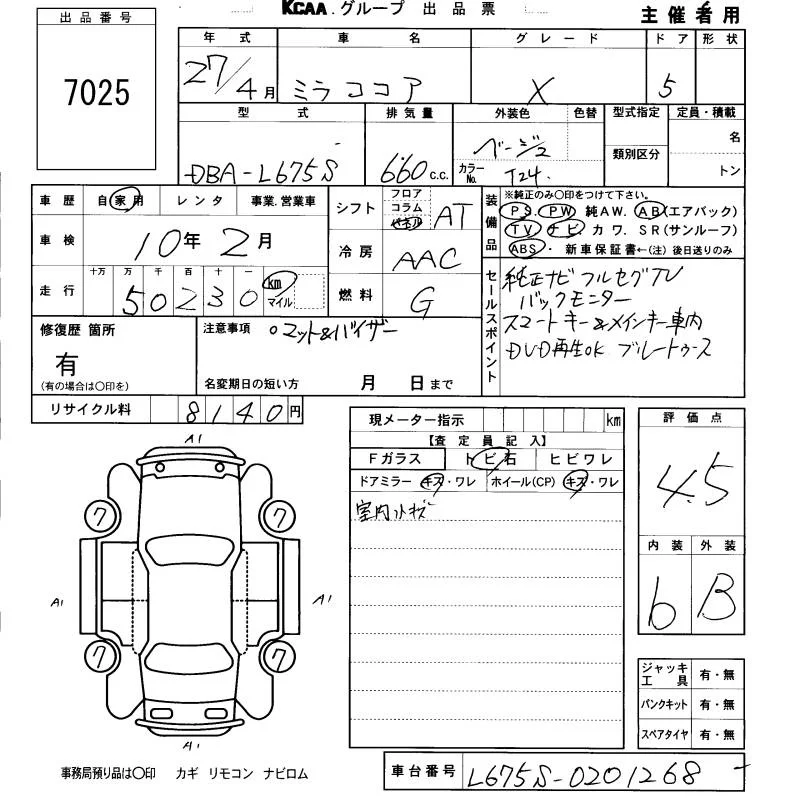 KCAA.グループ 出品票
主催者用
出品番号
7025
年式 車名 グレード ドア 形状
27/4月 ミラココア X 5
型式 排気量 外装色 色替 型式指定 定員・積載
DBA-L675S 660c.c. ベージュ 名
カラーNo. T24. 類別区分 トン
車歴 自家用 レンタ 事業.営業車
車検 10年2月
走行 十万 万 千 百 十 一
50230 km マイル
シフト フロア コラム パネル AT
冷房 AAC
燃料 G
装備品
※純正のみ〇印をつけて下さい。
PS. PW 純AW. AB(エアバック)
TV ナビ. カワ. SR(サンルーフ)
ABS・ 新車保証書←(注)後日送りのみ
セールスポイント
純正ナビ フルセグTV
バックモニター
スマートキー&メインキー車内
DVD再生OK ブルートゥース
修復歴 箇所
有
(有の場合は〇印を)
注意事項 。マット&バイザー
名変期日の短い方 月 日まで
リサイクル料 8140円
現メーター指示 km
【査定員記入】
Fガラス トビ石 ヒビワレ
ドアミラー キズ・ワレ ホイール(CP) キズ・ワレ
室内
評価点
4.5
内装 外装
b B
ジャッキ工具 有・無
パンクキット 有・無
スペアタイヤ 有・無
A1
7 7
A1 A1
7 7
A1
事務局預り品は〇印 カギ リモコン ナビロム
車台番号 L675S-0201268